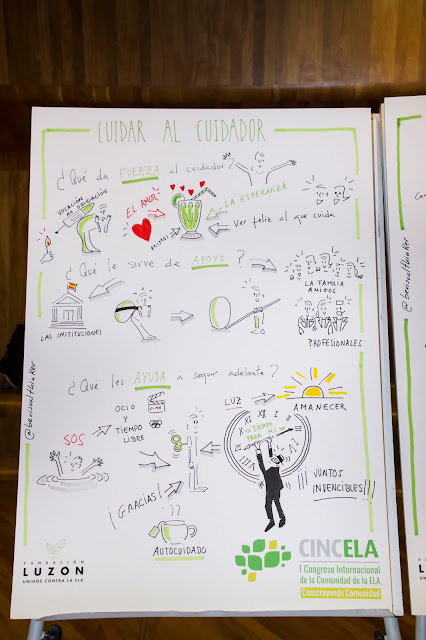 CUIDAR AL CUIDADOR
¿Qué da FUERZA al cuidador?
VOCACIÓN
OBLIGACIÓN
EL AMOR
LA ESPERANZA
MIMOS
Ver feliz al que cuida
¿Qué le sirve de APOYO?
LAS INSTITUCIONES
LA FAMILIA
AMIGOS
PROFESIONALES
¿Qué les AYUDA a seguir adelante?
OCIO
Y
TIEMPO
LIBRE
CINE
SOS
LUZ
AMANECER
XII
XI
I
X
TIEMPO
PARA MÍ
¡¡¡JUNTOS
INVENCIBLES!!!
¡GRACIAS!
??
AUTOCUIDADO
@beusualthinker
FUNDACIÓN
LUZÓN
UNIDOS CONTRA LA ELA
CINCELA
I Congreso Internacional
de la Comunidad de la ELA
Construyendo Comunidad
@beusualthinker